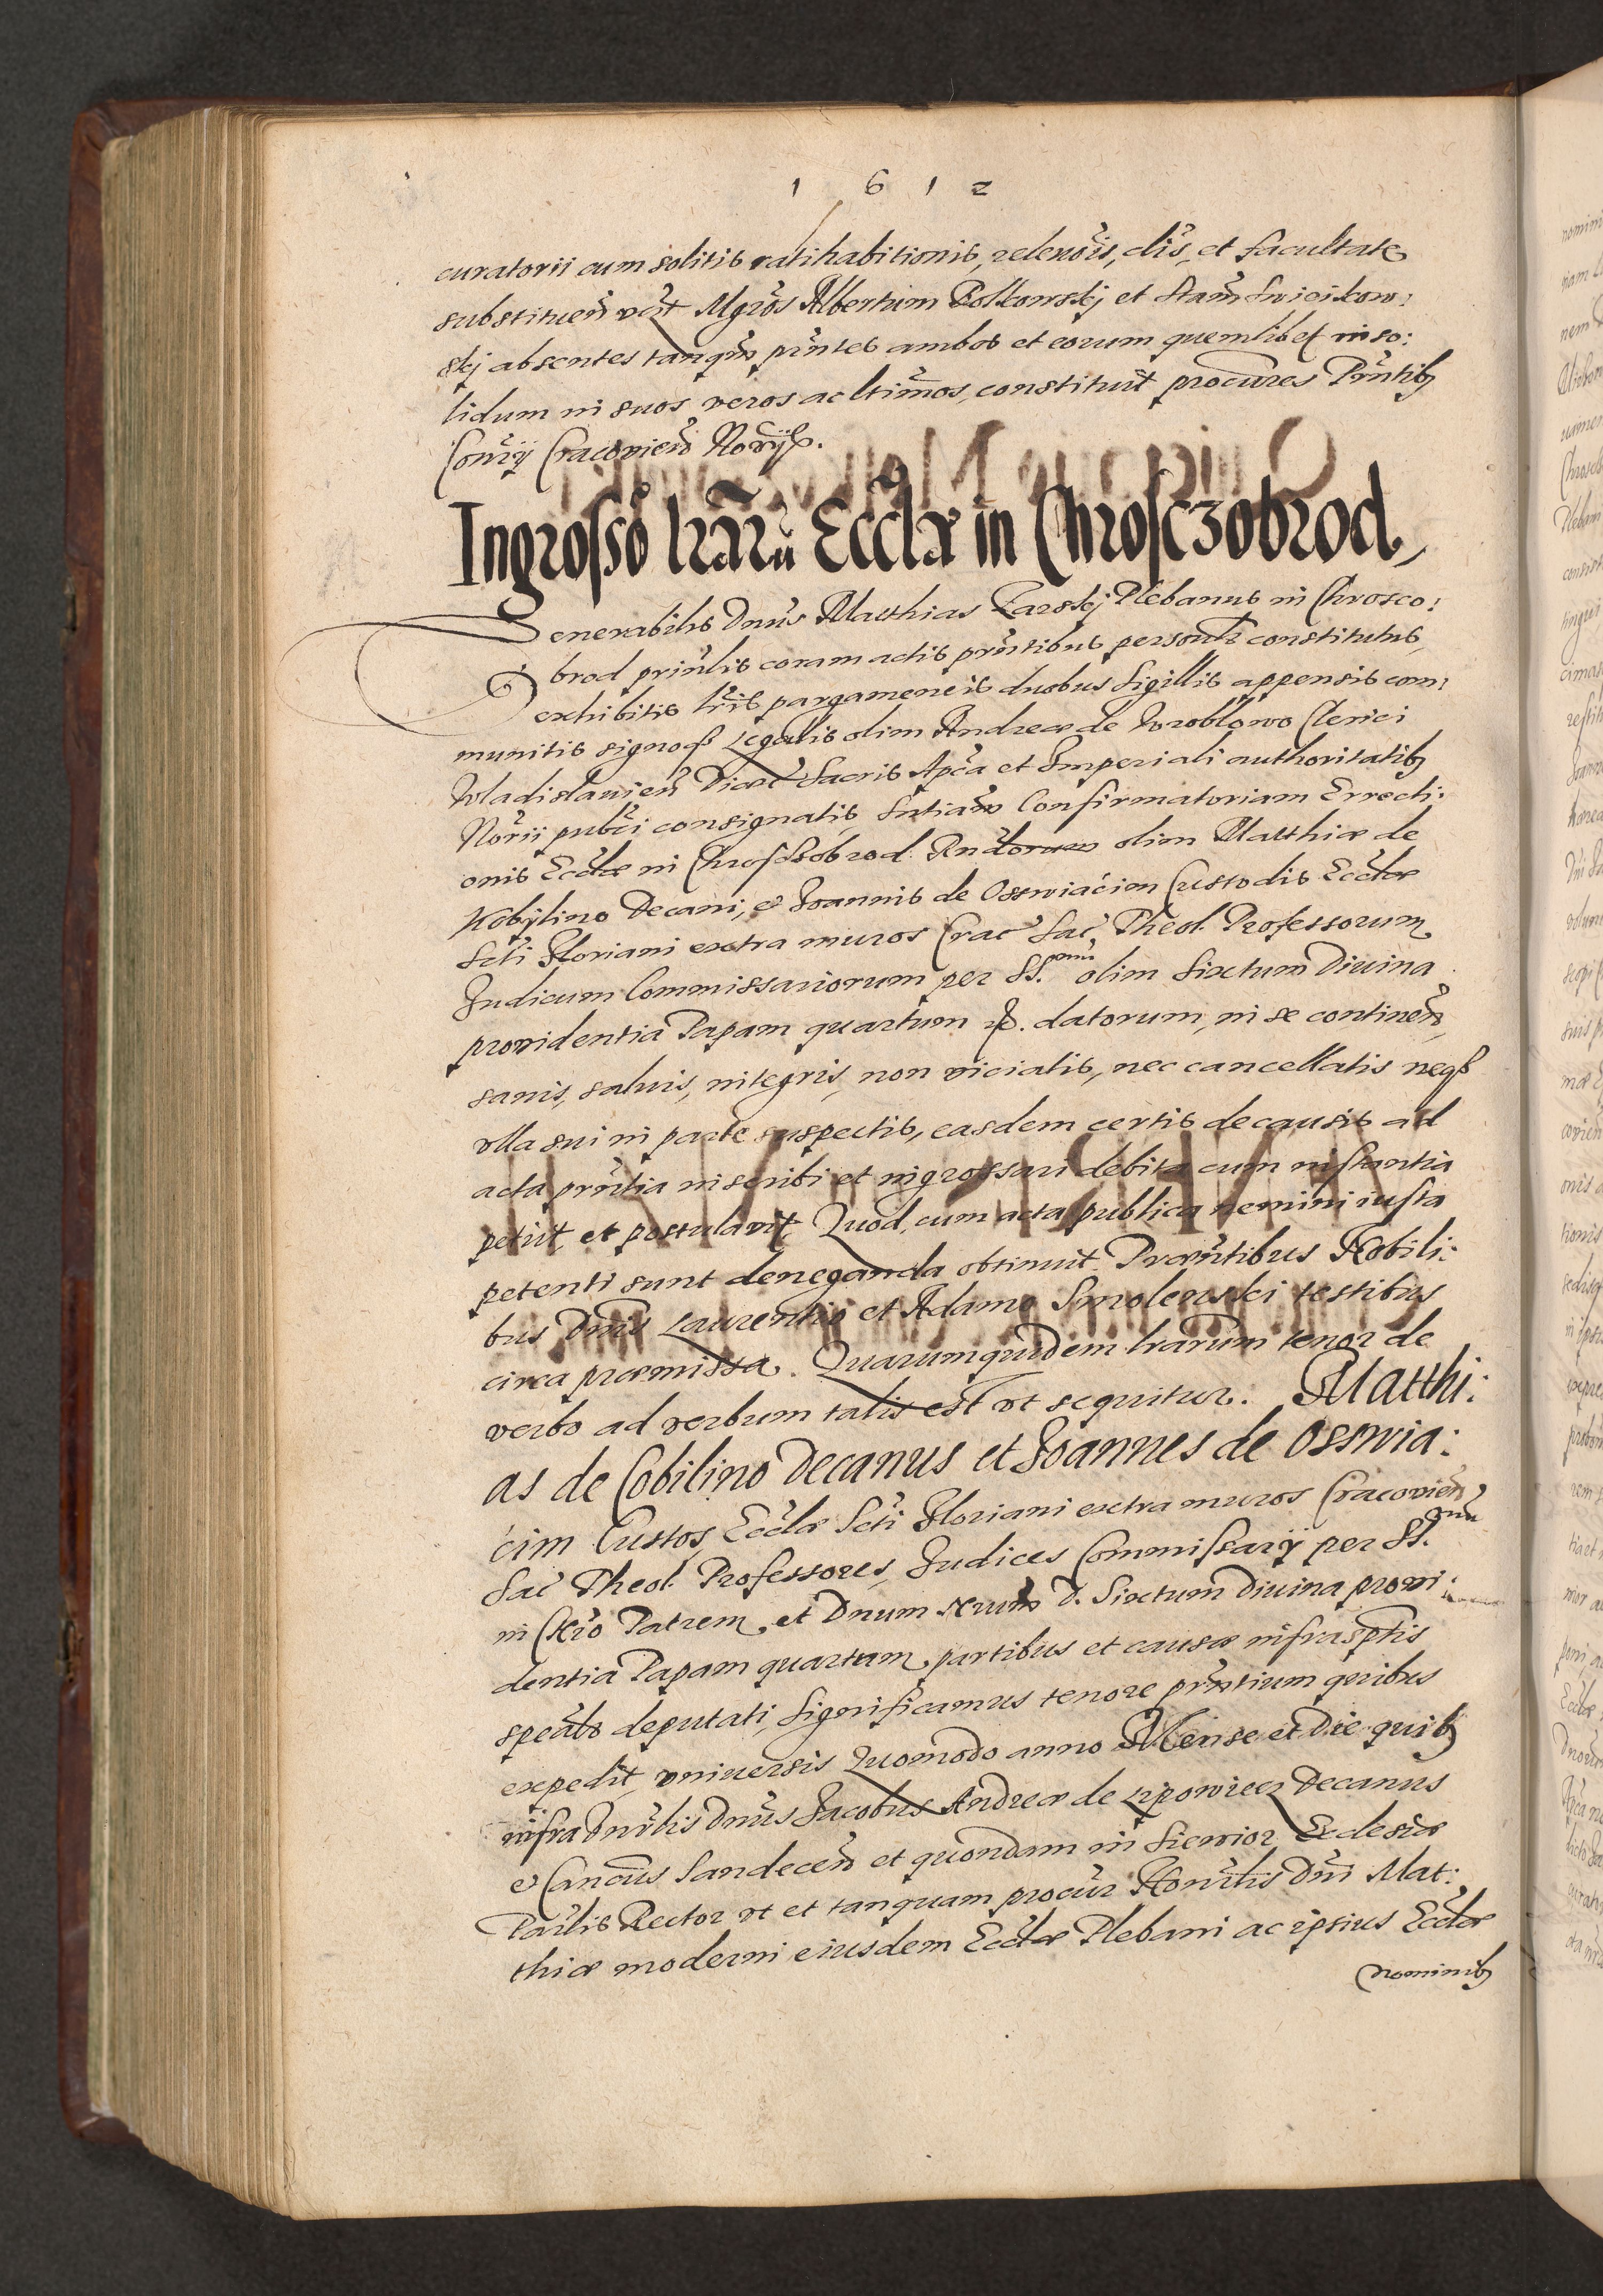 1612
curatorii cum solitis ratihabitionis, relenöis, clis, et facultate
substituen̄ vĉt Mgr̃os Albertum Polkowskj et Stanm̃
skj absentes tanqm̃ pr̃ntes ambos et eorum quemlibet in so:
lidum in suos veros ac ltimõs, constituit procur̃es Pr̃ntib9
Consr̃ij Cracovien̄ Norijs.
Ingrossõ lrãrũ Eccl̃æ in Chrosczobrod,
Venerabilis Dnũs Matthias Zarskj Plebanus in Chrosco:
brod prin̄lis coram actis pr̃ntibus personlr̃ constitutus,
exhibitis lr̃is pargameneis duobus Sigillis appensis com:
munitis signoq3 Legalis olim Andreæ de Wroblowo Clerici
Wladislavien̄ Diœc̃ Sacris Apc̃a et Imperiali authoritatib9
Norĩi pubc̃i consignatis, Sntiam̃ Confirmatoriam Errecti:
onis Eccl̃æ in Chrosczobrod. olim Matthiæ de
Kobylino Decani, et Joannis de Osswiáćim Custodis Eccl̃æ
Scti Floriani extra muros Crac̃ Sac̃ Theol. Professorum
Judicum Commissariorum per SS. olim Sixtum Divina
providentia Papam quartum &. datorum, in se continen̄,
sanis, salvis, integris, non viciatis, nec cancellatis neq3
vlla sui in parte suspectis, easdem certis de causis ad
acta pr̃ntia inscribi et ingrossari debita cum instantia
petiit, et postulavit, Quod, cum acta publica nemini iusta
petenti sunt deneganda obtinuit. Præsñtibus Nobili:
bus Dnis Laurentio et Adamo Smolenski testibus
circa præmissa. Quarumquidem lrarũm tenor de
verbo ad verbum talis est vt sequitur. Matthi:
as de Cobilino Decanus et Joannes de Osswia:
ćim Custos, Eccl̃æ Scti Floriani extra muros Cracovien̄
Sac̃ Theol. Professores, Judices Commissarij per SS.
in Chro Patrem, et Dnum nrum D. Sixtum divina provi:
dentia Papam quartum, partibus et causæ infrasptis
specãlr deputati, Significamus tenore pr̃ntium quibus
expedit, vniversis Quomodo anno Mense et Die quib9
infra Dnus Jacobus Andreæ de Lipowiec Decanus
et Cancus Sandecen̄ et quondam in Siewior Ecclesiæ
Parlis Rector vt et tanquam procur̃ Honrlis Dni Mat:
thiæ moderni eiusdem Eccl̃æ Plebani ac ipsius Eccl̃æ
nominib9